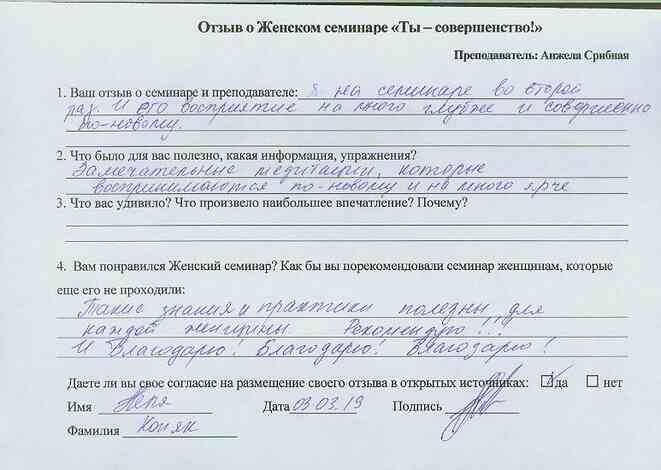 Отзыв о Женском семинаре «Ты – совершенство!»
Преподаватель: Анжела Срибная
1. Ваш отзыв о семинаре и преподавателе: Я на семинаре во второй
раз. И его восприятие на много глубже и совершенно
по-новому.
2. Что было для вас полезно, какая информация, упражнения?
Замечательные медитации, которые
воспринимаются по-новому и на много ярче
3. Что вас удивило? Что произвело наибольшее впечатление? Почему?
4. Вам понравился Женский семинар? Как бы вы порекомендовали семинар женщинам, которые
еще его не проходили:
Такие знания и практики полезны для
каждой женщины Рекомендую!!!
И Благодарю! Благодарю! Благодарю!
Даете ли вы свое согласие на размещение своего отзыва в открытых источниках: да нет
Имя Дата 03.03.19 Подпись
Фамилия Коняк